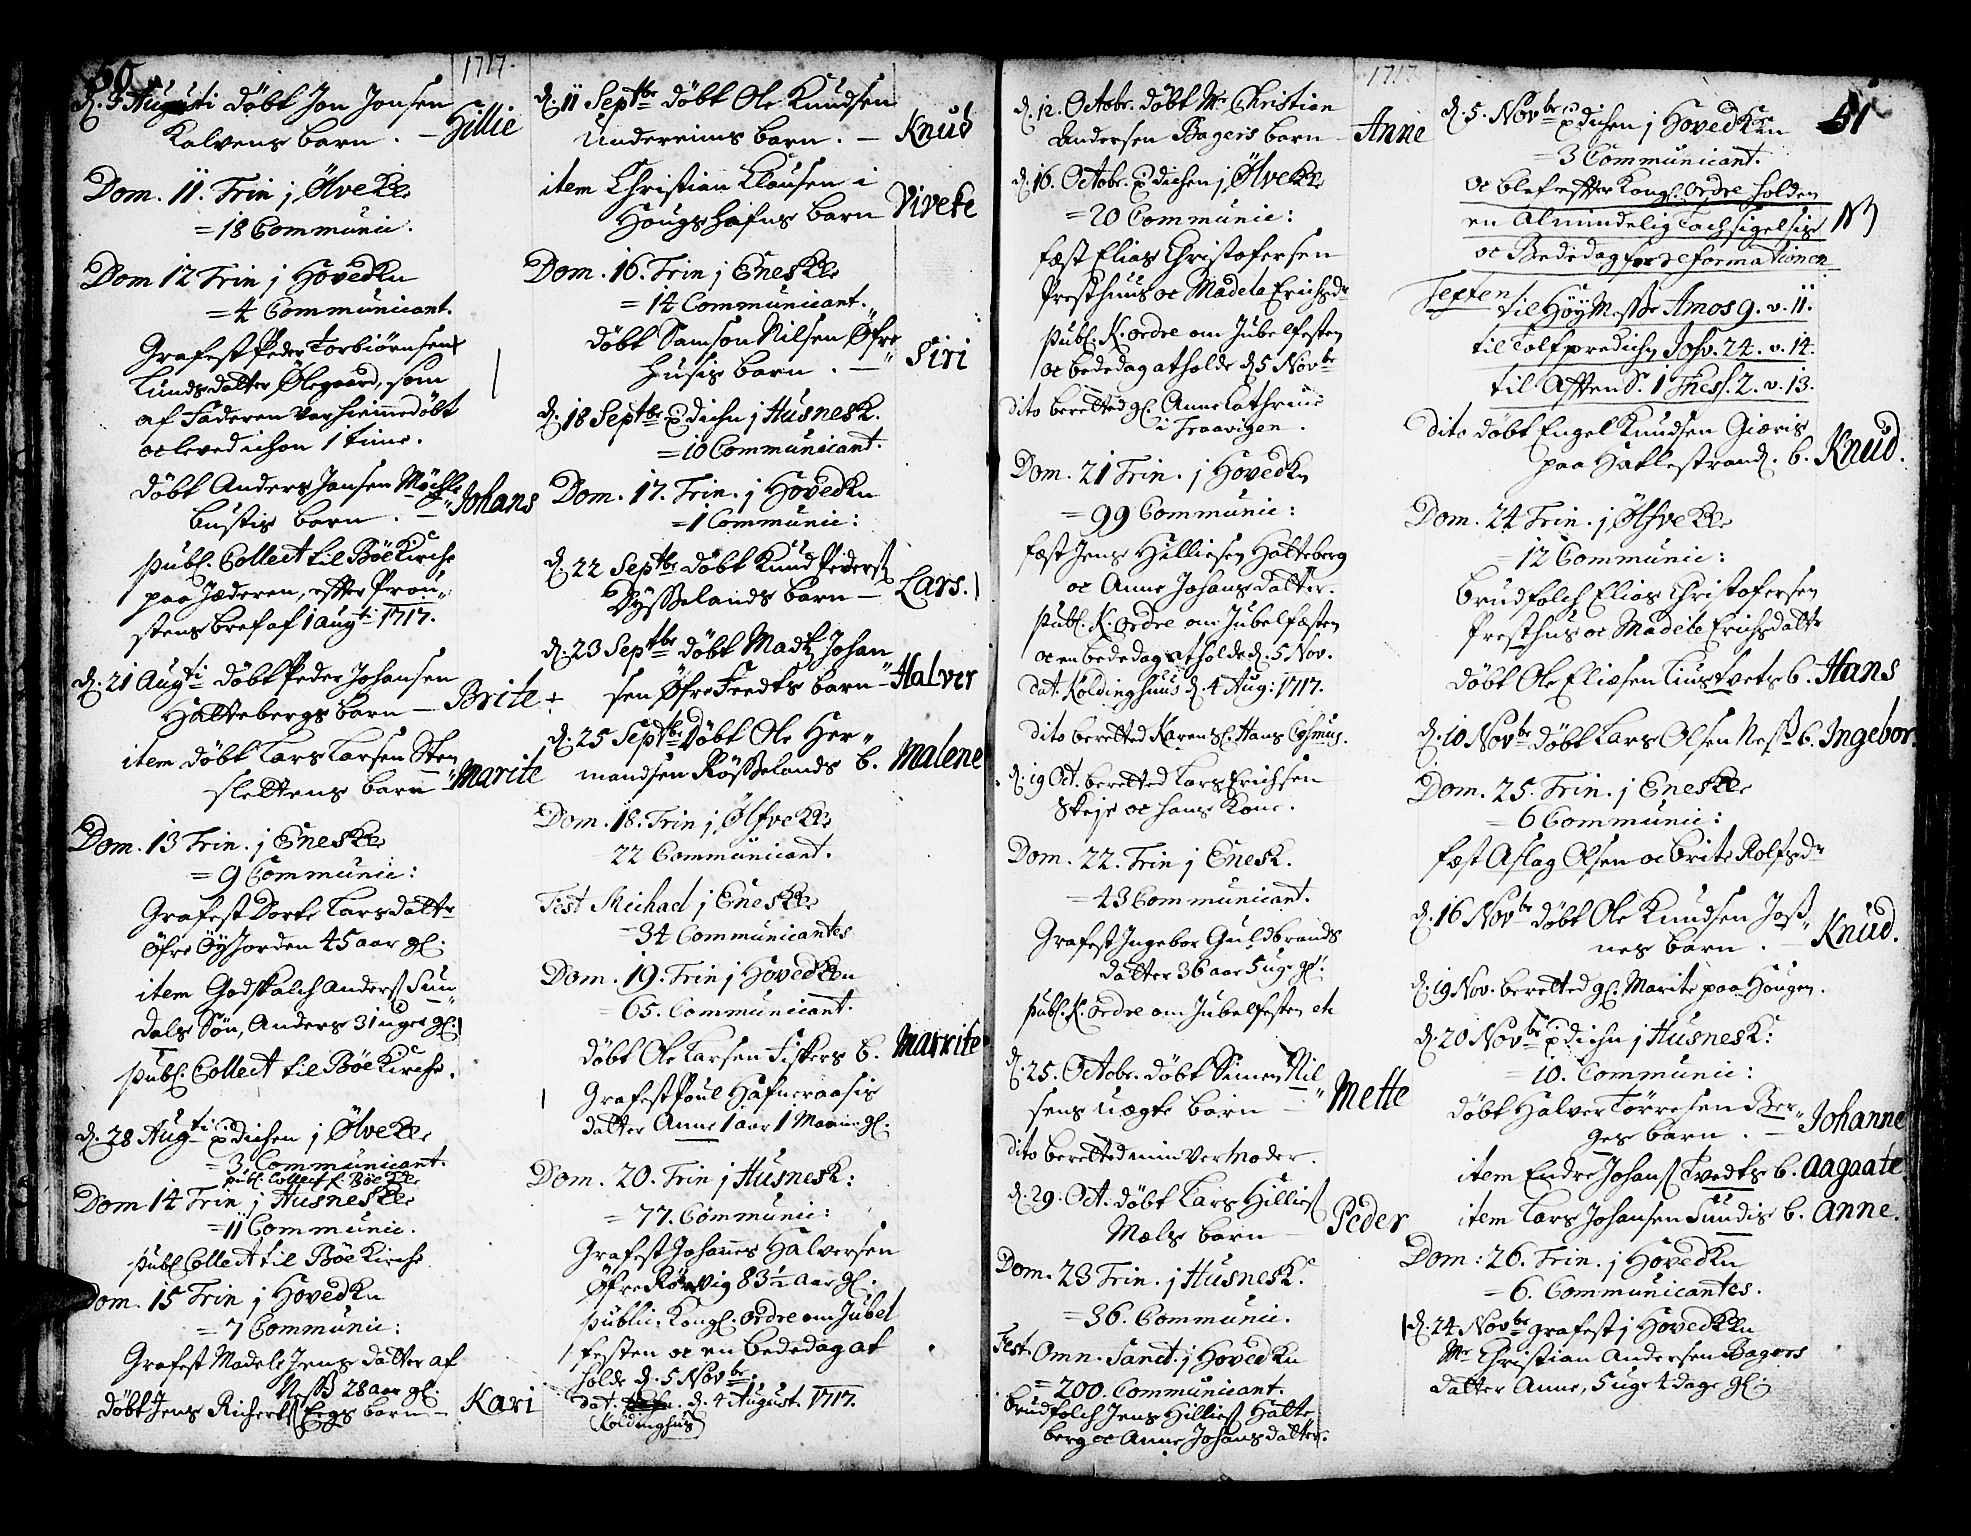 50
1717.
d. 3 Augusti döbt Jon Jonsen
Kalvens barn. — Gillie
Dom. 11. Trin j Ølve KKe
= 18 Communic.
Dom 12 Trin j Hovedkn
= 4 Communicant.
Grafest Peder Torbiörnsen
Lunds datter Ølegaard, som
af Faderen var hiemmedöbt
oc levede ichon 1 time.
döbt Anders Jansen Möchle
bustis barn. — Johans
publ. Collect til Böe Kirche
paa Jæderen, efter Prou-
stens bref af 1 Augti 1717.
d. 21 Augti döbt Peder Johansen
Haltebergs barn — Brite
item döbt Lars Larsen Sten
slettens barn — Marite
Dom. 13 Trin. j Enes KKe
= 9 Communic:
Grafest Dorte Larsdatter
Öfre Öyjorden 45 aar gl.
item Godskalch Anders Sun-
dals Sön, Anders 31 uger gl.
publ. Collect til Böe Kirche.
d. 28 Augti pdichen j Ølve KKe
= 3 Communicant.
publ. Collect t. Böe KKe
Dom 14 Trin j Husnes KKe
= 11 Communic.
publ Collect til Böe Kirche
Dom. 15 Trin j Hovedkn
= 7 Communic:
Grafest Madele Jens datter af
Næss 28 aar gl.
döbt Jens Richerts Eegs barn — Kari
d. 11 Septbr döbt Ole Knudsen
Undereims barn. — Knud
item Christian Clausen i
Hougshafns barn Viveke
Dom. 16. Trin j Enes KKe
= 14 Communicant.
döbt Samson Nilsen Öfre
husis barn. — Siri
d. 18 Septbr pdichn j Husnes K.
= 10 Communicant.
Dom. 17. Trin. j Hovedkn
= 1 Communic:
d. 22 Septbr döbt Knud Peders
Dysselands barn — Lars.
d. 23 Septbr döbt Madtz Johan
sen Öfre Feedts barn — Halver
d. 25 Septbr Döbt Ole Her-
mandsen Rösselands b. Malene
Dom. 18. Trin j Ølfve KKe
22 Communicant.
Fest Michael j Enes KKe
34 Communicantes
Dom. 19. Trin j Hoved KKn
= 65. Communicant.
döbt Ole Larsen Fiskers b. Marrite
Grafest Poul Hafneraasis
datter Anne 1 aar 1 Maane gl.
Dom. 20. Trin j Husnes K:
= 77. Communic:
Grafest Johannes Halversen
Öfre Rörvig 83 1/2 aar gl.
public. Kongl. ordre om Jubel
festen oc en bededag at
holde d. 5 Novbr.
dat. d. 4 August. 1717.
Koldinghus
1717.
d. 12. Octobr. döbt Mr Christian
Andersen Bagers barn — Anne
d. 16. Octobr. pdichen j Ølve KKe
= 20 Communic:
fæst Elias Christofersen
Presthuus oc Madela Erichsdr
publ. K. ordre om Jubelfesten
oc bededag at holde d. 5 Novbr
dito beretted gl. Anne Cathrine
i Traavigen.
Dom. 21 Trin. j Hovedkn
= 99 Communic:
fæst Jens Hilliesen Halteberg
oc Anne Johans datter.
publ. K. ordre om Jubelfesten
oc en bededag at holde d. 5 Nov.
dat. Koldinghuus d. 4 Aug: 1717.
dito berettet Karen Sl. Hans Cosmus.
d. 19 Oct. berettet Lars Erichsen
Skeje oc hans Kone.
Dom. 22. Trin j Enes K.
= 43 Communicant.
Grafest Ingebor Guldbrands
datter 36 aar 5 uge gl.
publ. K. ordre om Jubelfesten etc
d. 25. Octobr. döbt Simen Nil
sens Uægte barn — Mette
dito berettet min Vermoder.
d. 29. Oct. döbt Lars Hillies
Mæls barn — Peder
Dom. 23 Trin. j Husnes K.
= 36. Communic.
Fest. Omn. Sanct. j Hovedkn
= 200. Communicant.
brudfolch Jens Hillies Halte
berg oc Anne Johans datter.
51
d. 5. Novbr pdichen j Hoved KKn
= 3 Communicant.
oc blef efter Kongl. ordre holden
en Almindelig Tachsigelsis NB
oc Bededag for reformationen
Texten til HöyMesse Amos 9. v. 11.
til Tolfpredichn Johv. 24. v. 14.
til Aften S. 1 Thess. 2. v. 13.
dito döbt Engel Knudsen Giæris
paa Hatlestrand. b. Knud.
Dom. 24 Trin. j Ølfve KKe
= 12 Communic:
brudfolch Elias Christofersen
Presthus oc Madele Erichsdattr
döbt Ole Eliæsen Liustvets b. Hans
d. 10 Novbr döbt Lars Olsen Ness b. Ingebor.
Dom. 25. Trin. j Enes KKe
= 6 Communic:
fæst Aslag Olsen oc Brite Rolfsdr
d. 16 Novbr döbt Ole Knudsen Joss-
nes barn. — Knud.
d. 19 Nov. berettet gl. Marite paa Hougen.
d. 20 Novbr pdichn j Husnes K:
= 10. Communic:
döbt Halver Torresen Ber-
ges barn. — Johanne
item Endre Johans Tvedts b. Aagaate
item Lars Johansen Sundis b. Anne.
Dom: 26. Trin. j Hovedkn
= 6. Communicantes.
d. 24 Novbr grafest j Hoved KKn
Mr Christian Andersen Bagers
datter Anne, 5 uge 4 dage gl.